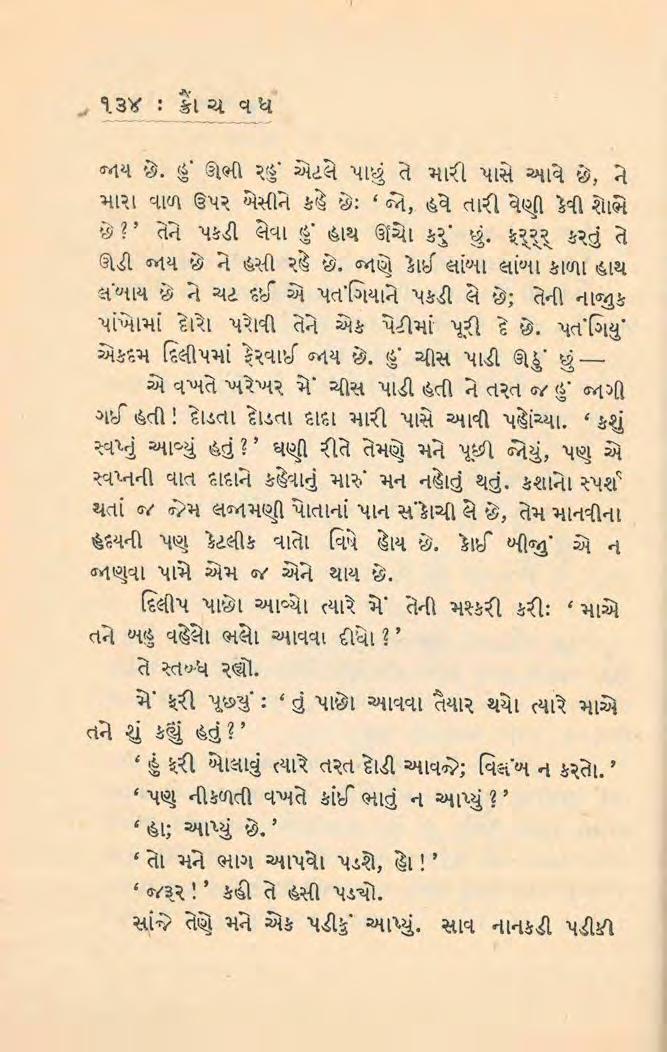 ૧૩૪ : ક્રૌંચ વધ
જાય છે. હું ઊભી રહું એટલે પાછું તે મારી પાસે આવે છે, ને
મારા વાળ ઉપર બેસીને કહે છેઃ ‘જો, હવે તારી વેણી કેવી શોભે
છે?’ તેને પકડી લેવા હું હાથ ઊંચો કરું છું. ફર્ર્ર્ર્ કરતું તે
ઊડી જાય છે ને હસી રહે છે. જાણે કોઈ લાંબા લાંબા કાળા હાથ
લંબાય છે ને ચટ દઈ એ પતંગિયાને પકડી લે છે; તેની નાજુક
પાંખોમાં દોરો પરોવી તેને એક પેટીમાં પૂરી દે છે. પતંગિયું
એકદમ દિલીપમાં ફેરવાઈ જાય છે. હું ચીસ પાડી ઊઠું છું—
એ વખતે ખરેખર મેં ચીસ પાડી હતી ને તરત જ હું જાગી
ગઈ હતી! દોડતા દોડતા દાદા મારી પાસે આવી પહોંચ્યા. ‘કશું
સ્વપ્નું આવ્યું હતું?’ ઘણી રીતે તેમણે મને પૂછી જોયું, પણ એ
સ્વપ્નની વાત દાદાને કહેવાનું મારું મન નહોતું થતું. કશાનો સ્પર્શ
થતાં જ જેમ લજામણી પોતાનાં પાન સંકોચી લે છે, તેમ માનવીના
હૃદયની પણ કેટલીક વાતો વિષે હોય છે. કોઈ બીજું એ ન
જાણવા પામે એમ જ એને થાય છે.
દિલીપ પાછો આવ્યો ત્યારે મેં તેની મશ્કરી કરીઃ ‘માએ
તને બહુ વહેલો ભલો આવવા દીધો?’
તે સ્તબ્ધ રહ્યો.
મેં ફરી પૂછ્યું : ‘તું પાછો આવવા તૈયાર થયો ત્યારે માએ
તને શું કહ્યું હતું?’
‘હું ફરી બોલાવું ત્યારે તરત દોડી આવજે; વિલંબ ન કરતો.’
‘પણ નીકળતી વખતે કાંઈ ભાતું ન આપ્યું?’
‘હા; આપ્યું છે.’
‘તો મને ભાગ આપવો પડશે, હો!’
‘જરૂર!’ કહી તે હસી પડ્યો.
સાંજે તેણે મને એક પડીકું આપ્યું. સાવ નાનકડી પડીકી